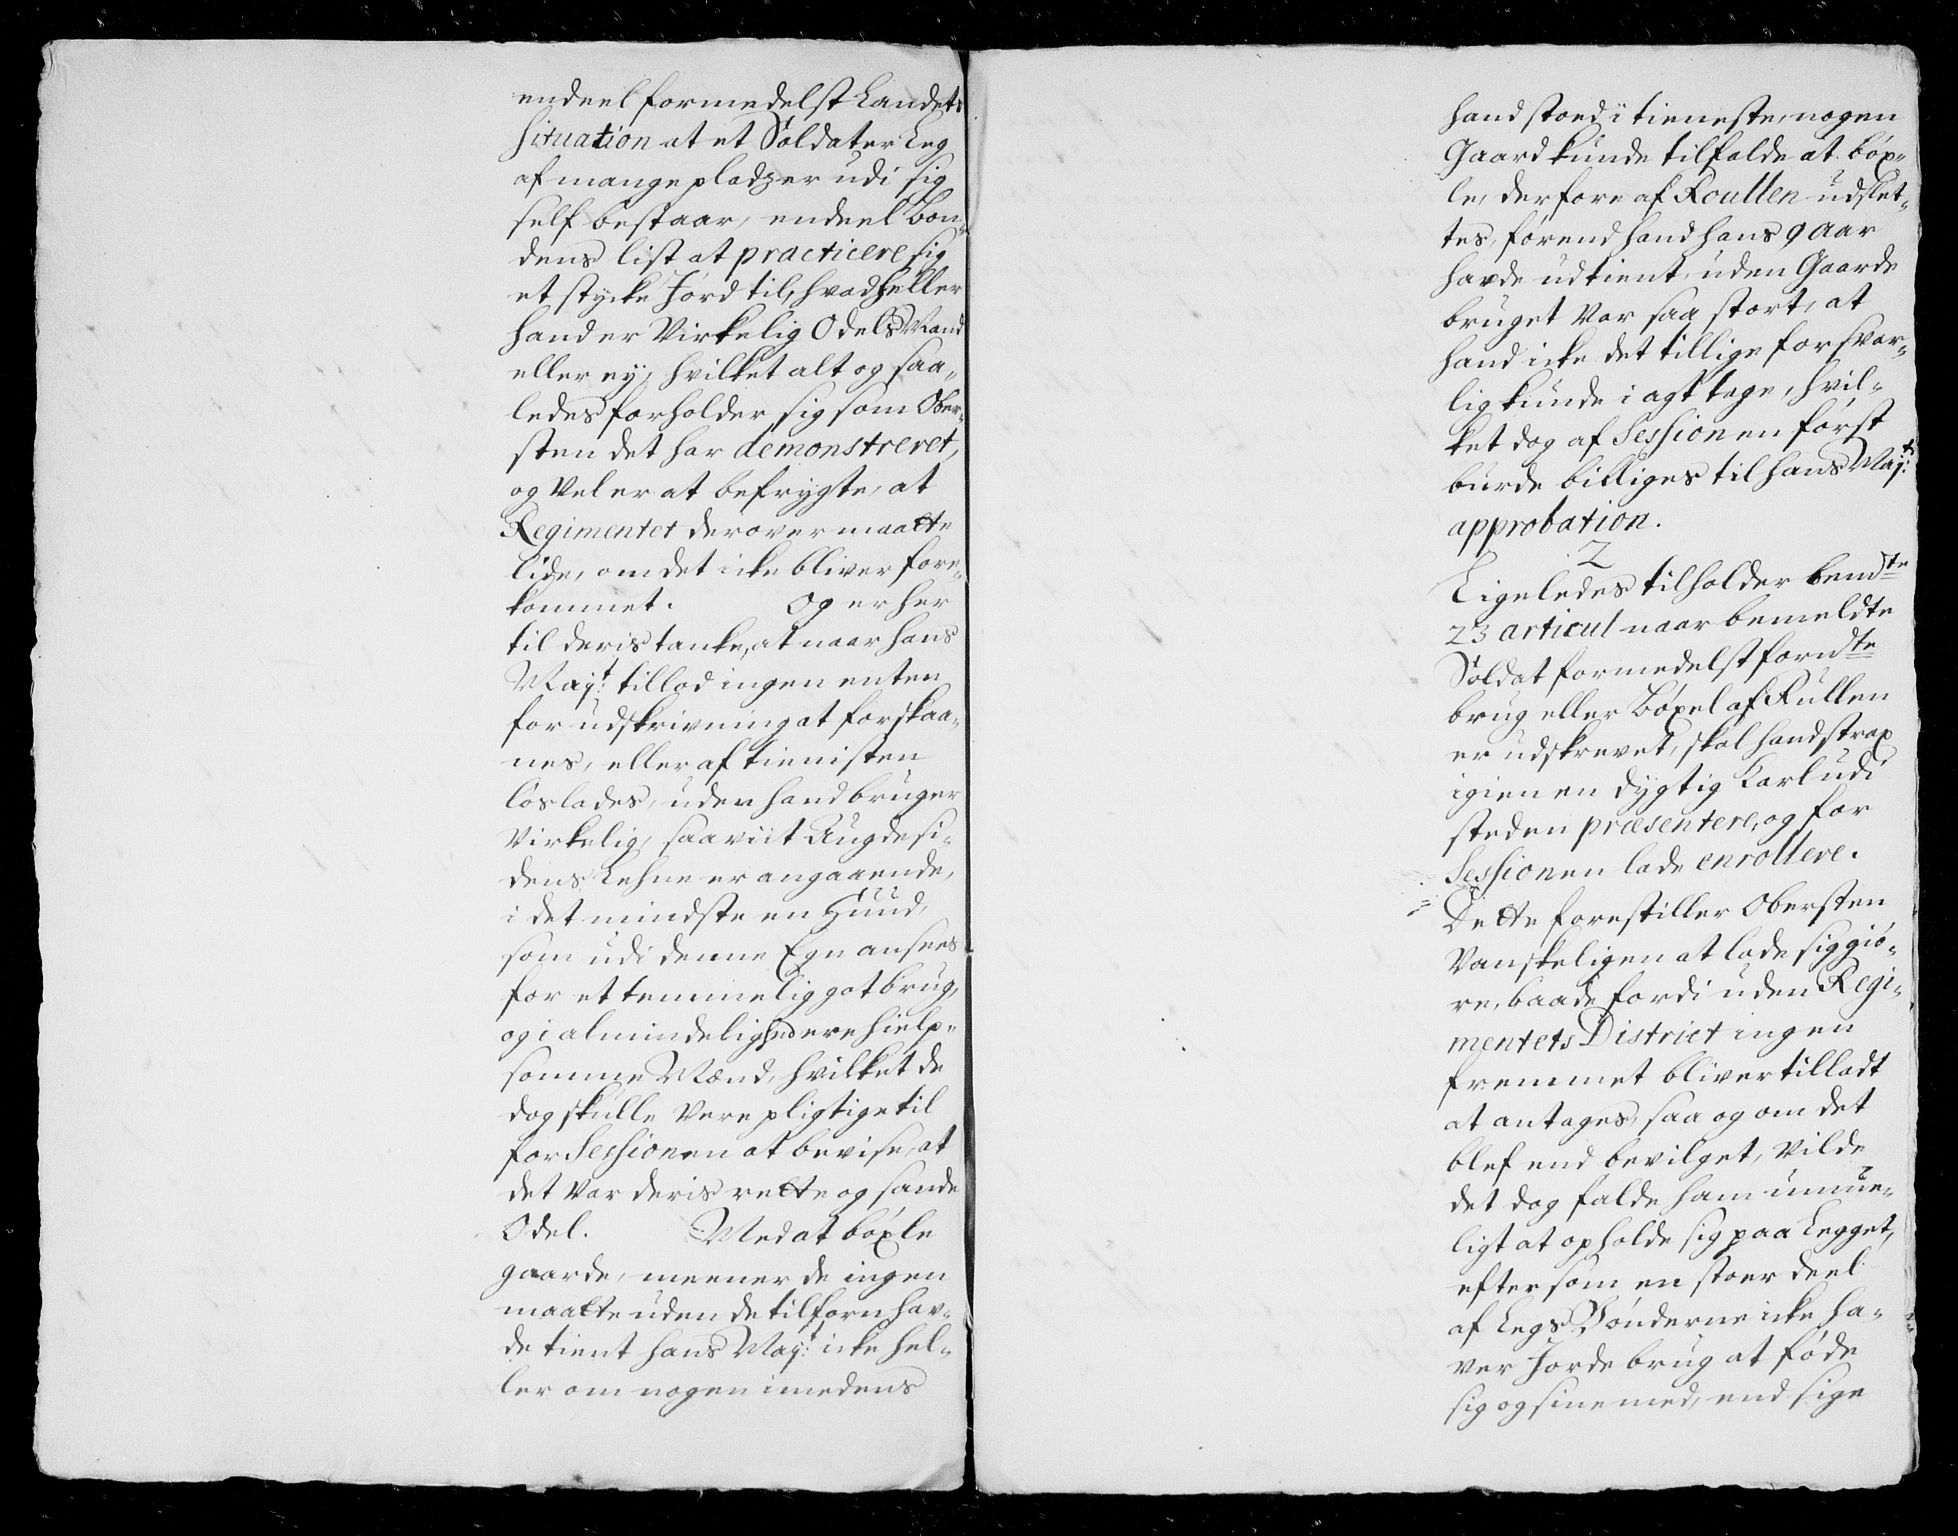 endeel formedelst Landets
Situation at et Soldater Leg
af mange pladser udi sig
self bestaar, endeel Bon¬
dens list at practicere sig
et stycke Jord til, hvad heller
hand er Virkelig Odels Mand
eller ey, hvilket alt og saa¬
ledes forholder sig som Ober¬
sten det har demonstreret,
og Vel er at befrygte, at
Regimentet derover maatte
lide, om det icke bliver fore¬
kommet. Og er her
til deris tanke, at naar hans
Mayt: tillod ingen enten
for udskrivning at forskaa¬
nes, eller af tienisten
loslades, uden hand bruger
Virkelig, saaviit Augdesi¬
dens Lehne er angaaende,
i det mindste en Huud,
som udi denne Egn ansees
for et temmelig got brug,
og i almindelighed ere hielp¬
somme Mænd, hvilket de
dog skulle Vere pligtige til
for Sessionen at bevise, at
det Var deris rette og sande
Odel. Med at böxle
gaarde, meener de ingen
maatte uden de tilforn hav¬
de tient hans Mayt: icke hel¬
ler om nogen imedens
hand stoed i tieneste, nogen
Gaard kunde tilfalde at böx¬
le, derfore af Roullen udslet¬
tes, förend hand hans 9 aar
havde udtient, uden Gaarde
bruget Var saa stort, at
hand icke det tillige forsvar¬
lig kunde i agt tage, hvil¬
ket dog af Sessionen först
burde billiges til hans Mayts:
approbation.
2
Ligeledes tilholder bemdte
23 articul naar bemeldte
Soldat formedelst forndte
brug eller Böxel af Rullen
er udskrevet, skal hand strax
igien en dygtig Karl udi
steden præsentere, og for
Sessionen lade enrollere.
Dette forestiller Obersten
Vanskeligen at lade sig giö¬
re, baade fordi uden Regi¬
mentets District ingen
fremmet bliver tilladt
at antages, saa og om det
blef end bevilget, Vilde
det dog falde ham umue¬
ligt at opholde sig paa Legget,
eftersom en stoer deel
af Legs Bönderne icke ha¬
ver Jordebrug at föde
sig og sine med, end sige